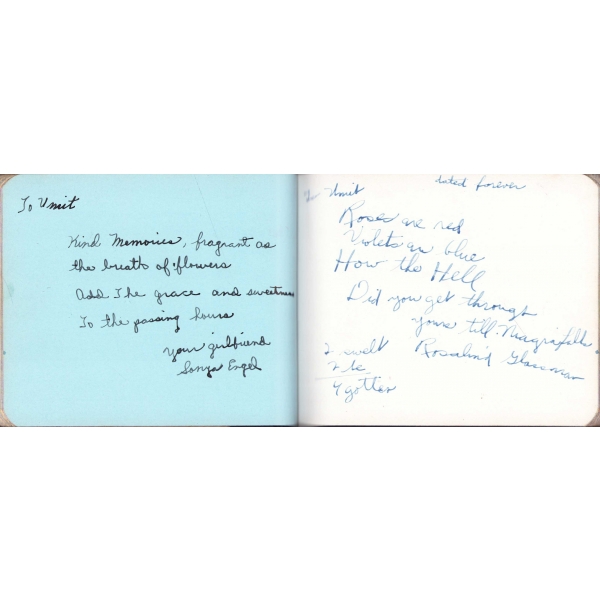 To Umit
Kind Memories, fragrant as
the breath of flowers
Add The grace and sweetness
To the passing hours
your girlfriend
Sonya Engel
To Umit
dated forever
Roses are red
Violets are blue
How the Hell
Did you get through
yours till Niagra falls
Rosalind Glassman
2
2
4 gotten